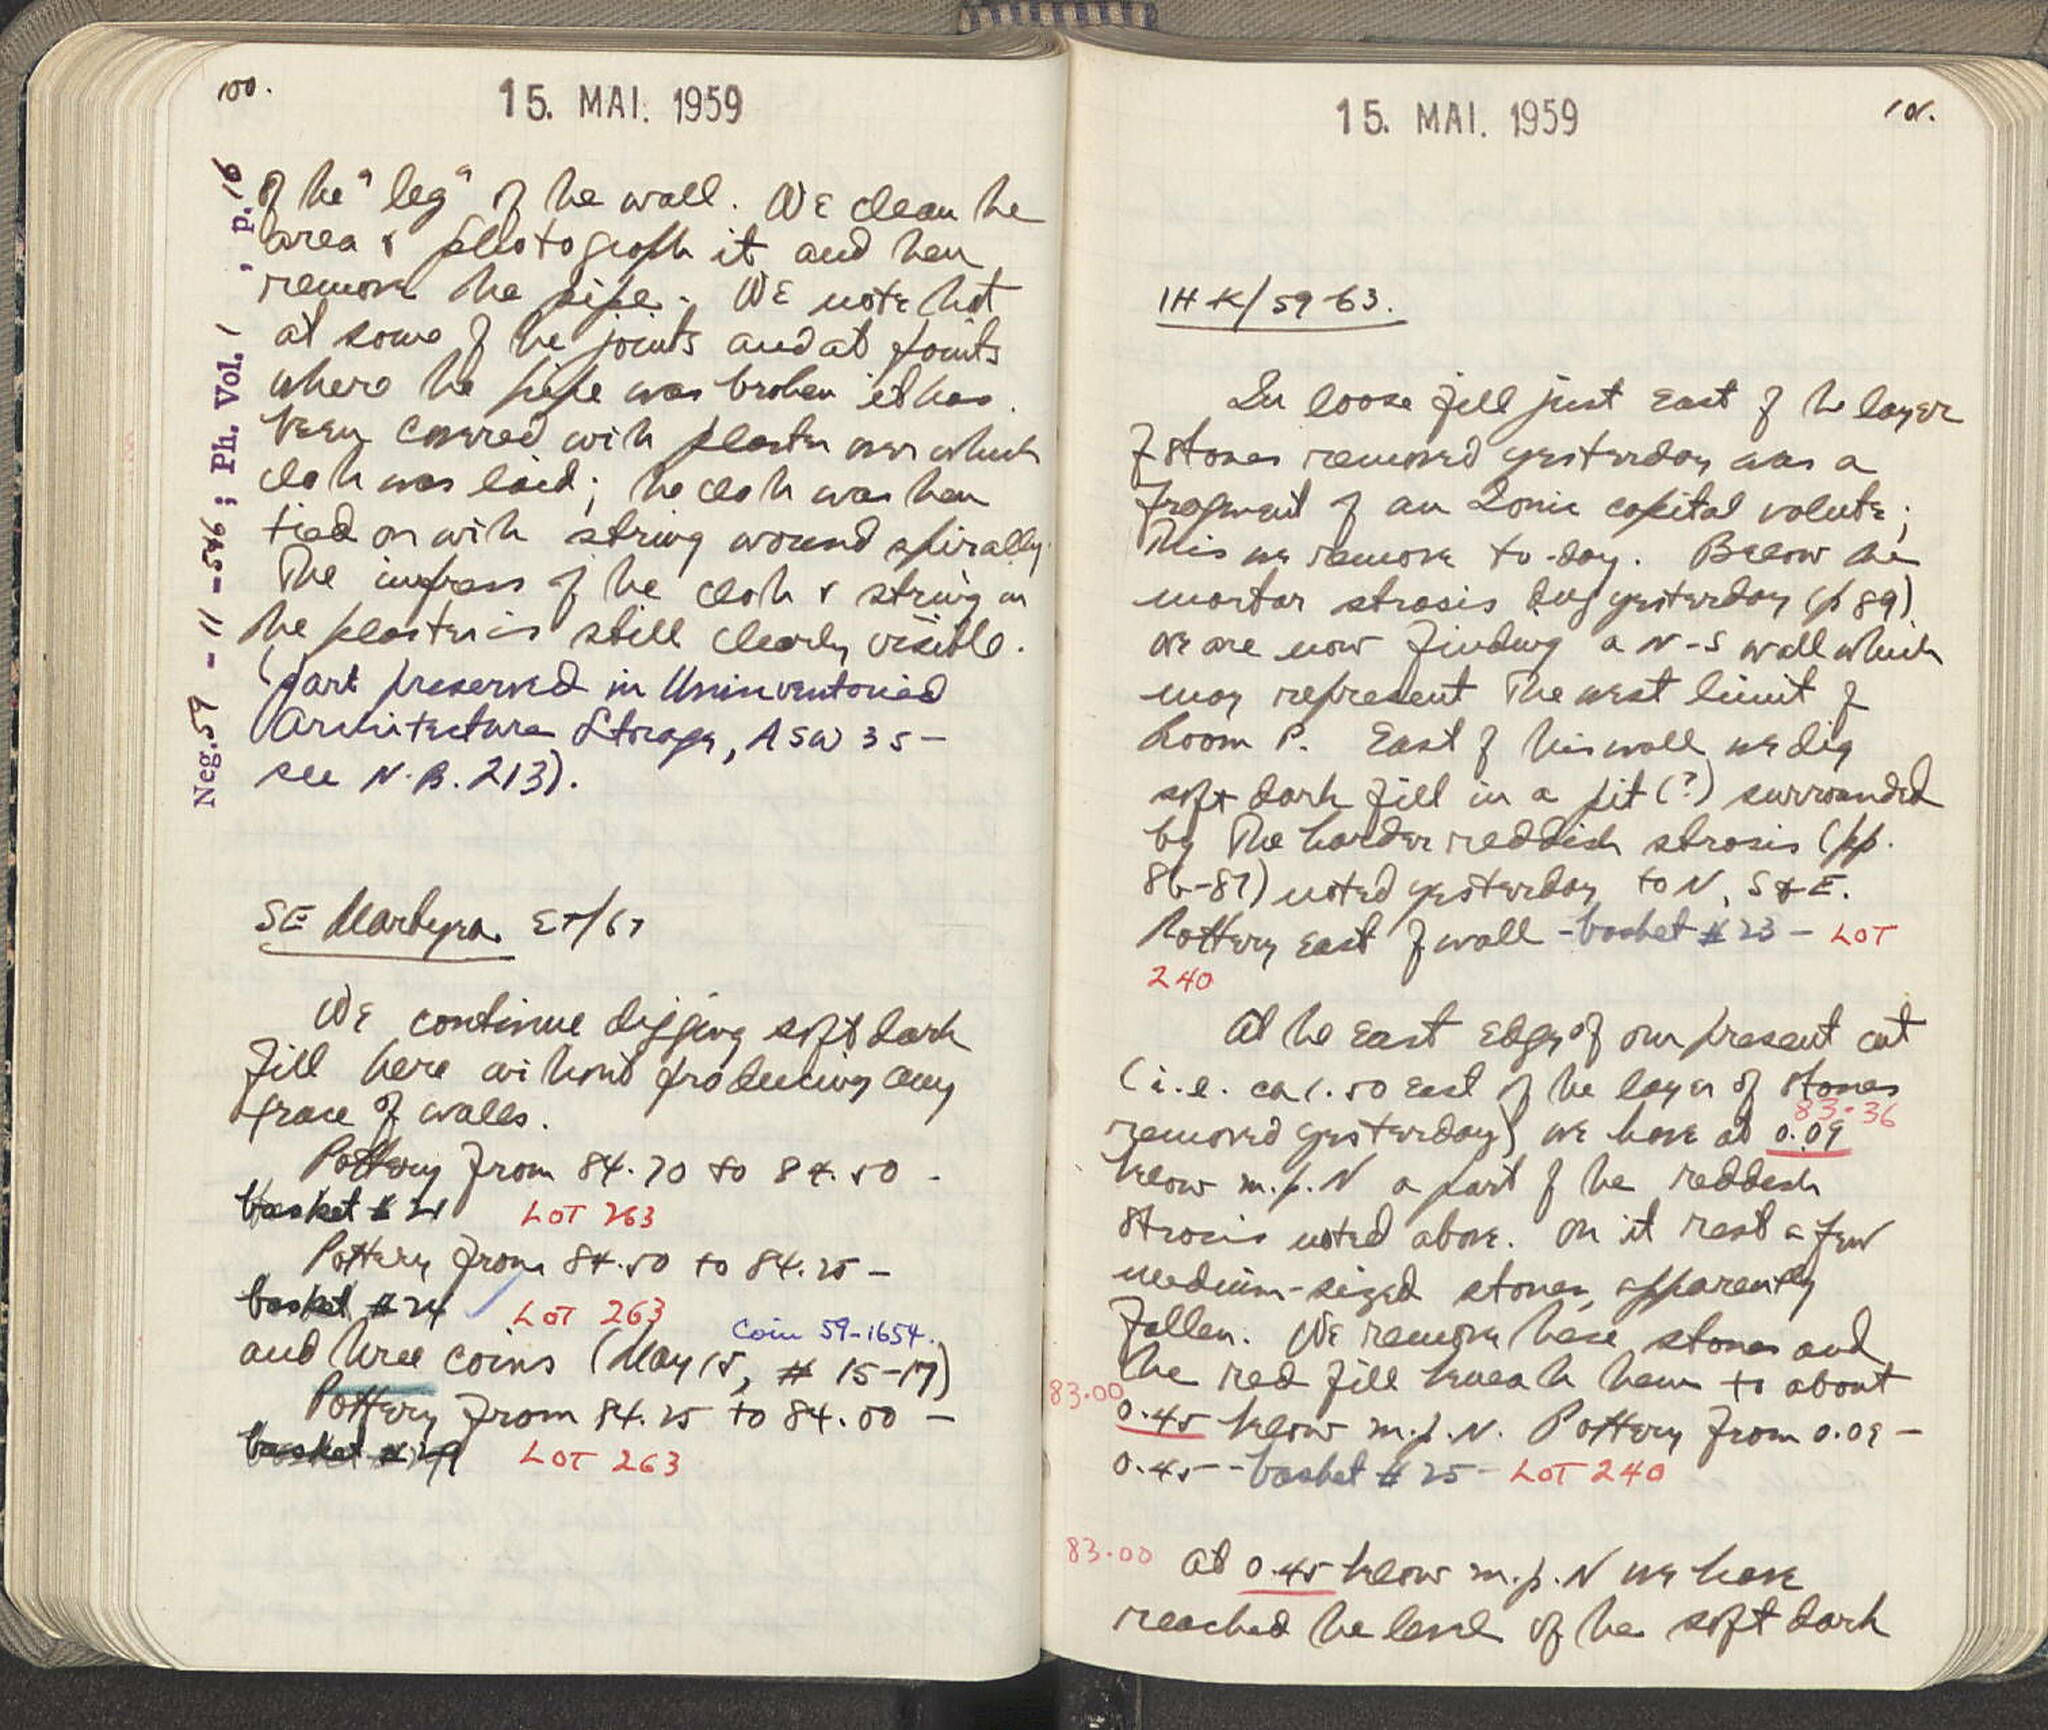 100.
15. MAI. 1959
Neg. 59 - 11 - 546 ; Ph. Vol. 1 , p. 16
of the "leg" of the wall. We clean the
area & photograph it and then
remove the pipe. We note that
at some of the joints and at points
where the pipe was broken it has
been covered with plaster over which
cloth was laid; the cloth was then
tied on with string wound spirally.
The impress of the cloth & string in
the plaster is still clearly visible.
(part preserved in Uninventoried
Architecture Storage, ASW 35 -
see N.B. 213).
SE Martyra.
We continue digging soft dark
fill here without producing any
trace of walls.
Pottery from 84.70 to 84.50 -
basket # 21 LOT 263
Pottery from 84.50 to 84.25 -
basket # 24 LOT 263
Coin 59-1654.
and three coins (May 15, # 15-17)
Pottery from 84.25 to 84.00 -
basket # 29 LOT 263
15. MAI. 1959
101.
IHK/59-63.
In loose fill just East of the layer
of stones removed yesterday was a
fragment of an Ionic capital volute;
This we remove to-day. Below the
mortar strosis dug yesterday (p 89)
we are now finding a N-S wall which
may represent The west limit of
Room P. East of this wall we dig
soft dark fill in a pit (?) surrounded
by The harder reddish strosis (pp.
86-87) noted yesterday to N, S & E.
Pottery East of wall - basket # 23 - LOT
240
At the East Edge of our present cut
(i.e. ca 1.50 East of the layer of stones
83.36
removed yesterday) we have at 0.09
below m.p. N a part of the reddish
strosis noted above. On it rest a few
medium-sized stones, apparently
fallen. We remove these stones and
the red fill beneath them to about
83.00
0.45 below m.p. N. Pottery from 0.09 -
0.45 - basket # 25 - LOT 240
83.00 At 0.45 below m.p. N we have
reached the level of the soft dark